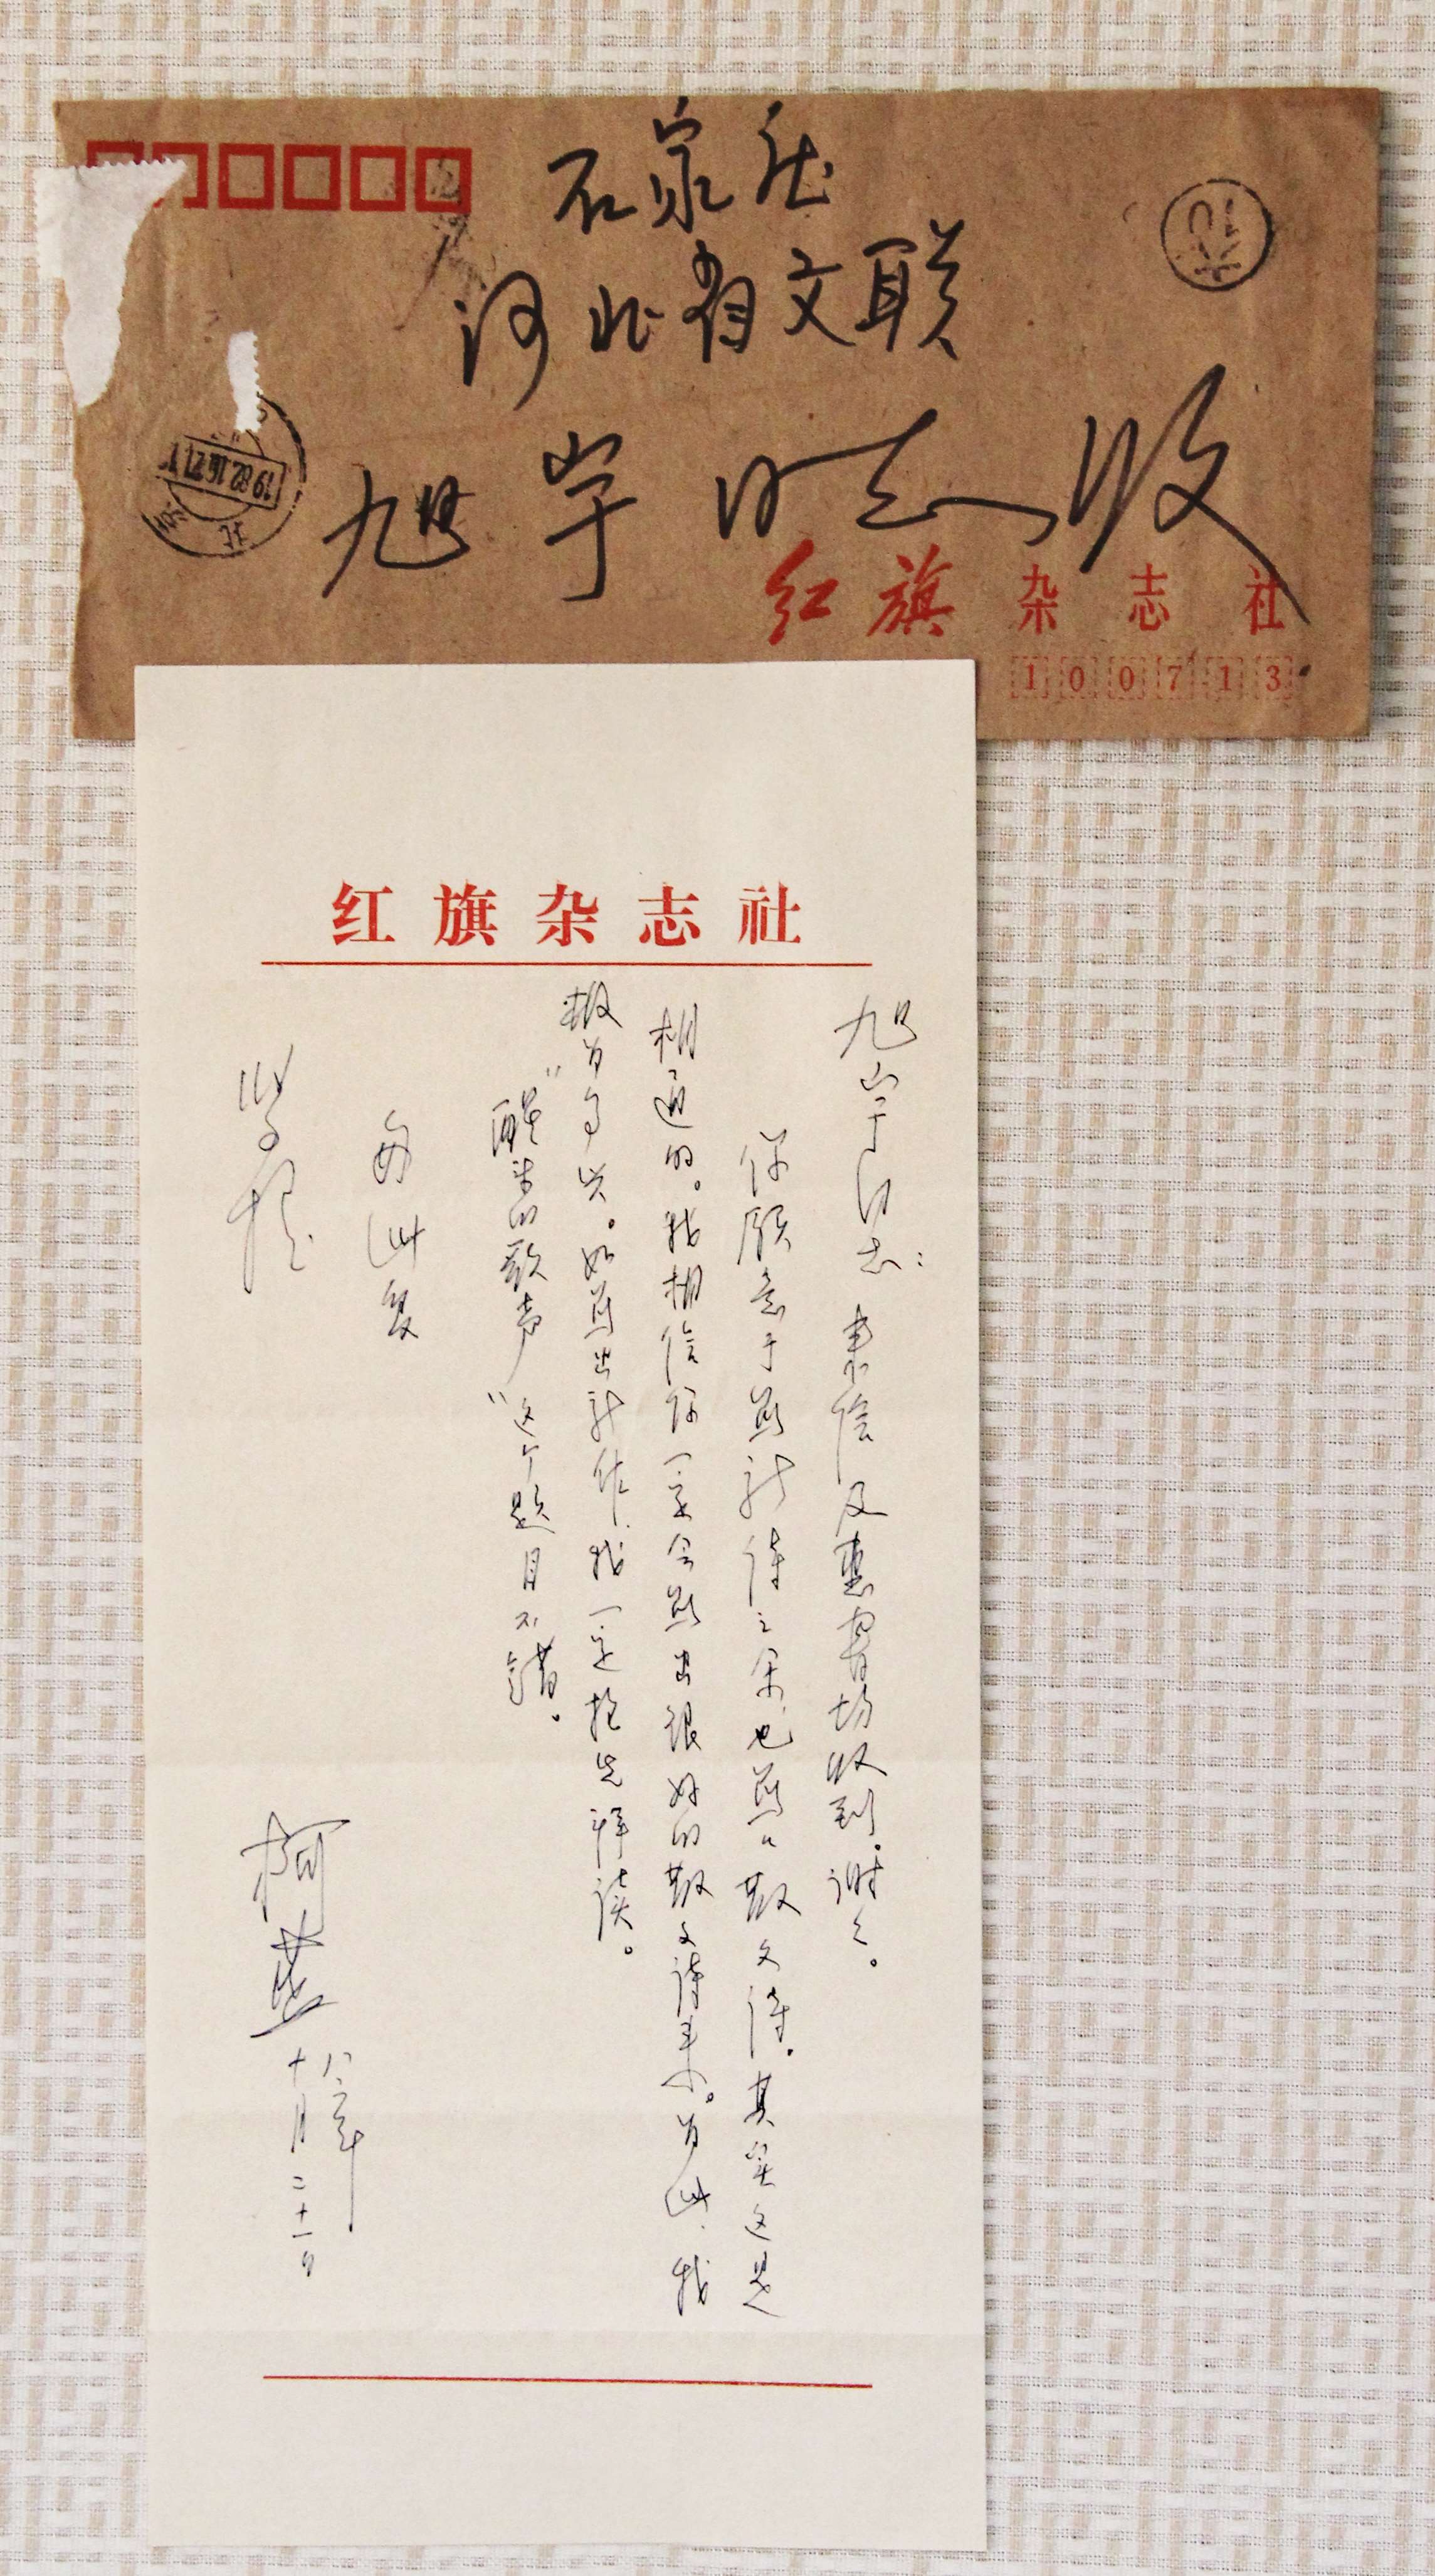 石家庄
河北省文联
旭宇同志收
红旗杂志社
100713
北京
红旗杂志社
旭宇同志：来信及惠寄均收到，谢谢。
你愿意于写新诗之余也写写散文诗，其实这是
相通的。我相信你一定会写出很好的散文诗来。为此，我
极为高兴。如写出新作，我一定抢先拜读。
“醒来的歌声”这个题目不错。
匆此复
握
柯蓝
十月二十一日